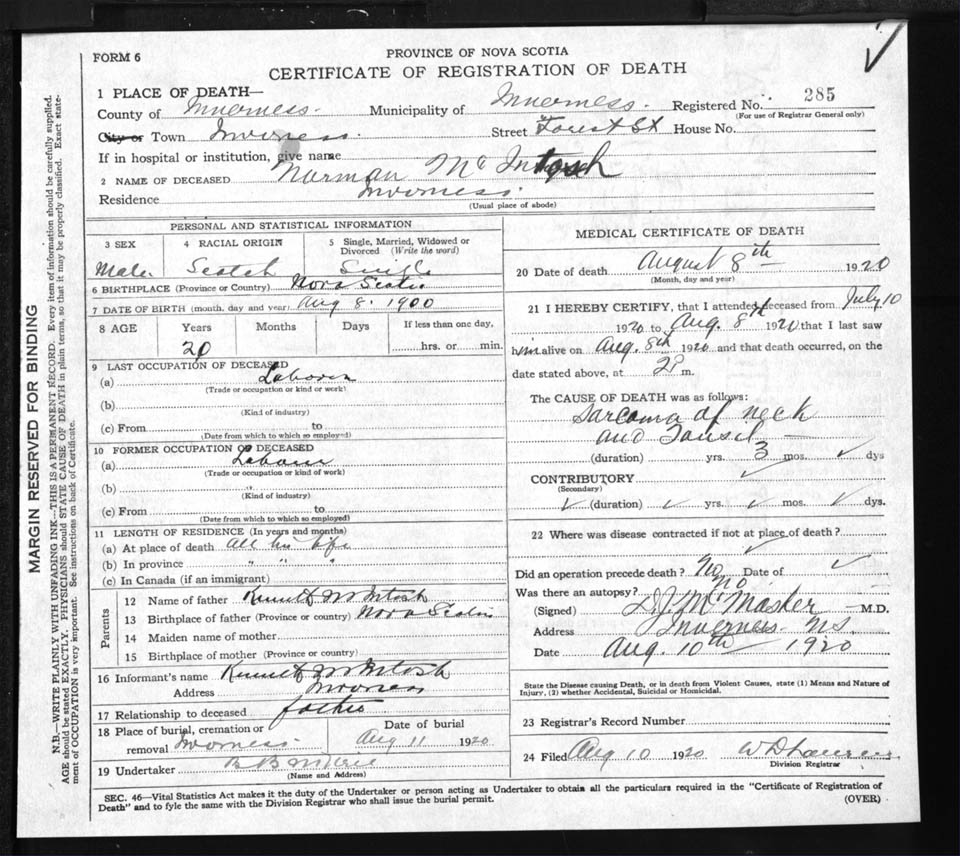 FORM 6
PROVINCE OF NOVA SCOTIA
CERTIFICATE OF REGISTRATION OF DEATH
1 PLACE OF DEATH—
County of Inverness. Municipality of Inverness. Registered No. 285
(For use of Registrar General only)
City or Town Inverness. Street Forest St House No.
If in hospital or institution, give name
2 NAME OF DECEASED Norman Mc Intosh
Residence Inverness.
(Usual place of abode)
PERSONAL AND STATISTICAL INFORMATION
3 SEX 4 RACIAL ORIGIN 5 Single, Married, Widowed or Divorced (Write the word)
Male. Scotch Single
6 BIRTHPLACE (Province or Country) Nova Scotia
7 DATE OF BIRTH (month, day and year) Aug 8. 1900
8 AGE Years Months Days If less than one day,
20 hrs. or min.
9 LAST OCCUPATION OF DECEASED
(a) Laborer
(Trade or occupation or kind or work)
(b)
(Kind of industry)
(c) From to
(Date from which to which so employed)
10 FORMER OCCUPATION OF DECEASED
(a) Laborer
(Trade or occupation or kind of work)
(b) "
(Kind of industry)
(c) From to
(Date from which to which so employed)
11 LENGTH OF RESIDENCE (In years and months)
(a) At place of death all his life
(b) In province " " "
(c) In Canada (if an immigrant)
Parents
12 Name of father Kenneth McIntosh
13 Birthplace of father (Province or country) Nova Scotia
14 Maiden name of mother
15 Birthplace of mother (Province or country)
16 Informant's name Kenneth McIntosh
Address Inverness
17 Relationship to deceased father
18 Place of burial, cremation or removal Inverness. Date of burial Aug 11 1920
19 Undertaker
(Name and Address)
MEDICAL CERTIFICATE OF DEATH
20 Date of death August 8th 1920
(Month, day and year)
21 I HEREBY CERTIFY, that I attended deceased from July 10
1920 to Aug. 8th 1920 that I last saw
him alive on Aug. 8th 1920 and that death occurred, on the
date stated above, at m.
The CAUSE OF DEATH was as follows:
Sarcoma of neck
and Tonsil —
(duration) yrs. 3 mos. ✓ dys
CONTRIBUTORY
(Secondary)
✓ (duration) ✓ yrs. ✓ mos. ✓ dys.
22 Where was disease contracted if not at place of death?
✓
Did an operation precede death? No Date of ✓
Was there an autopsy? No
(Signed) D.J. McMaster M.D.
Address Inverness N.S.
Date Aug. 10th 1920
State the Disease causing Death, or in death from Violent Causes, state (1) Means and Nature of
Injury, (2) whether Accidental, Suicidal or Homicidal.
23 Registrar's Record Number
24 Filed Aug 10 1920
Division Registrar
SEC. 46—Vital Statistics Act makes it the duty of the Undertaker or person acting as Undertaker to obtain all the particulars required in the "Certificate of Registration of
Death" and to fyle the same with the Division Registrar who shall issue the burial permit. (OVER)
MARGIN RESERVED FOR BINDING
N.B.—WRITE PLAINLY WITH UNFADING INK—THIS IS A PERMANENT RECORD. Every item of information should be carefully supplied.
AGE should be stated EXACTLY. PHYSICIANS should STATE CAUSE OF DEATH in plain terms, so that it may be properly classified. Exact state-
ment of OCCUPATION is very important. See instructions on back of Certificate.